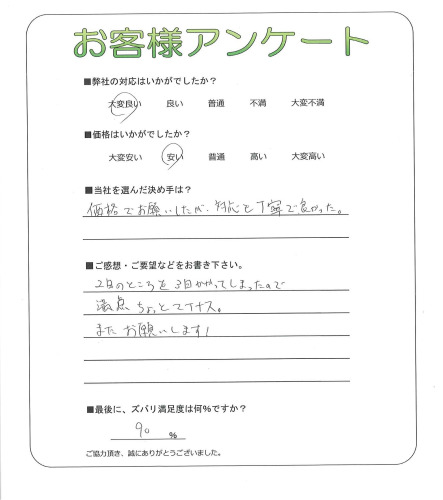 お客様アンケート
■弊社の対応はいかがでしたか？
大変良い 良い 普通 不満 大変不満
■価格はいかがでしたか？
大変安い 安い 普通 高い 大変高い
■当社を選んだ決め手は？
価格でお願いしたが、対応も丁寧で良かった。
■ご感想・ご要望などをお書き下さい。
2日のところを3日かかってしまったので
満点ちょっとマイナス。
またお願いします!
■最後に、ズバリ満足度は何%ですか？
90 %
ご協力頂き、誠にありがとうございました。